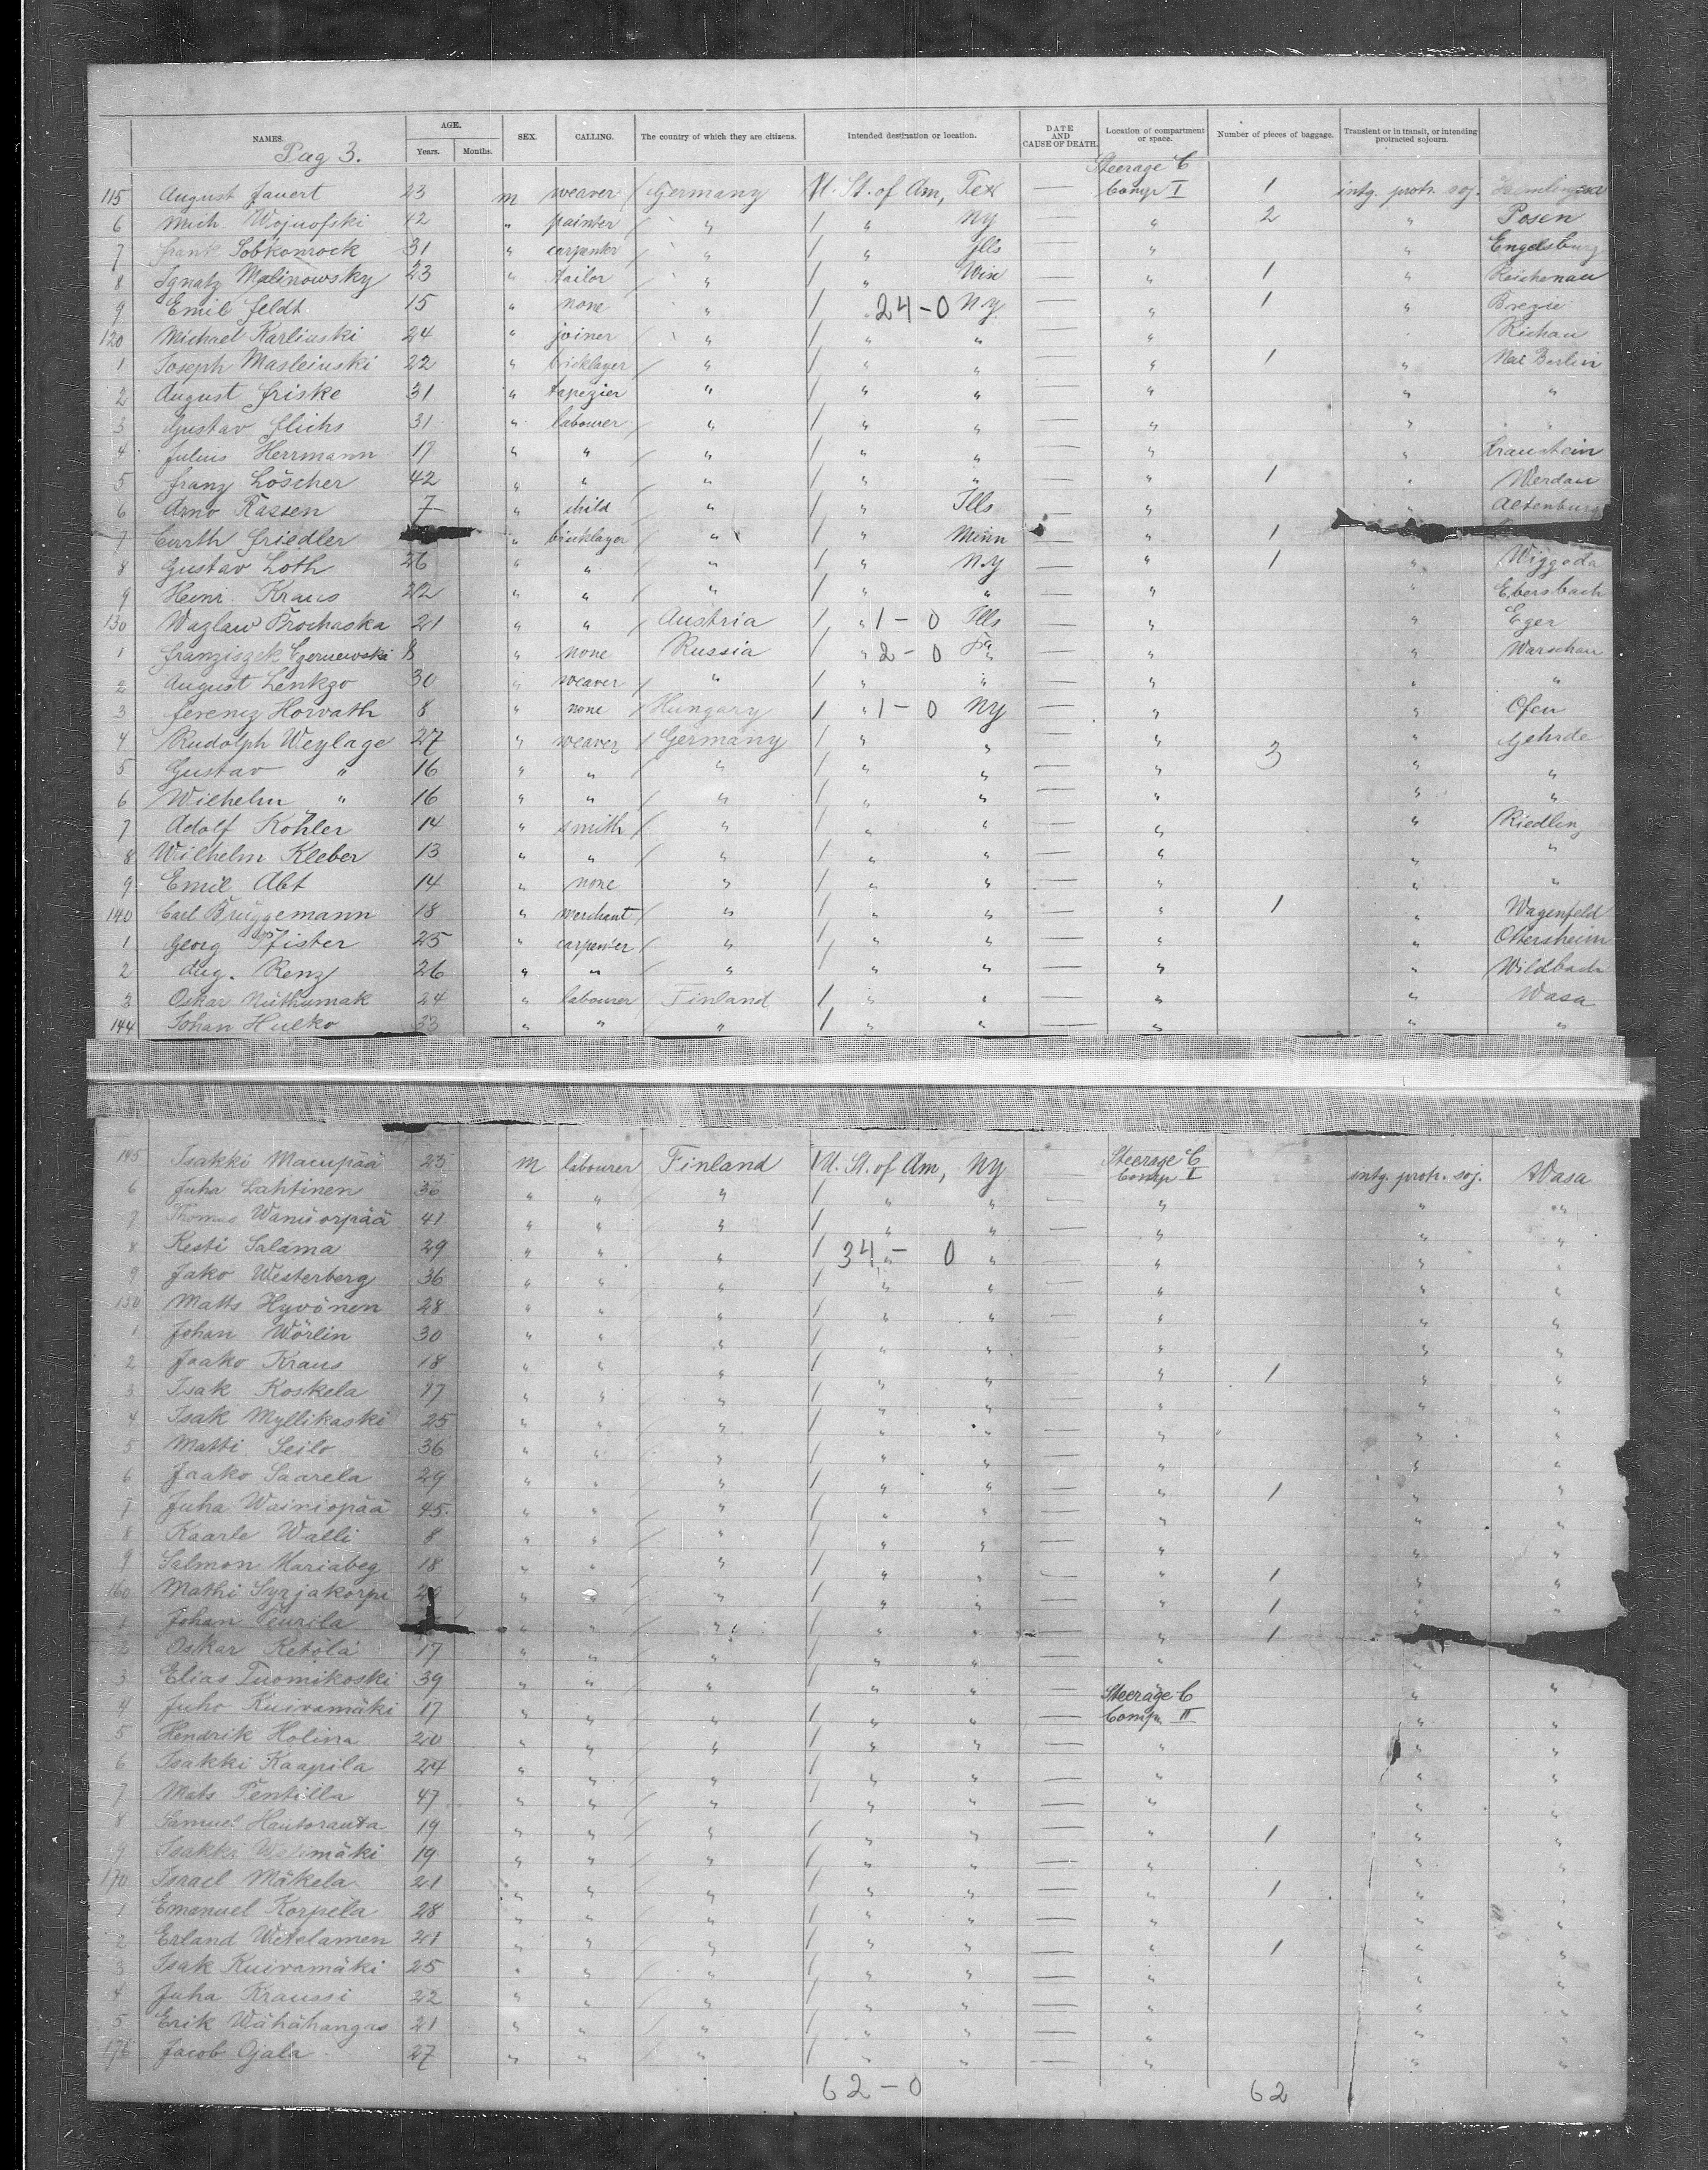 NAMES. AGE. Years. Months. SEX. CALLING. The country of which they are citizens. Intended destination or location. DATE AND CAUSE OF DEATH. Location of compartment or space. Number of pieces of baggage. Transient or in transit, or intending protracted sojourn.
Pag 3.
Steerage C
115 August Jauert 23 m weaver / Germany U. St. of Am, Tex — Comp I 1 intg. protr. soj.
6 Mich. Wojnofski 42 " painter / " / " Ny — " 2 " Posen
7 Frank Sobkonrock 31 " carpenter / " / " Ills — " " Engelsburg
8 Ignatz Malinowsky 23 " tailor / " / " Wis — " 1 " Reichenau
9 Emil Feldt 15 " none " / " 24-0 Ny — " 1 " Brezie
120 Michael Karlinski 24 " joiner / " / " " — " Richau
1 Joseph Masleinski 22 " bricklayer / " / " " — " 1 " Nai Berlin
2 August Friske 31 " tapezier " / " " — " " "
3 Gustav Flichs 31 " labourer / " / " " — " " "
4 Julius Herrmann 17 " " / " / " " — " "
5 Franz Löscher 42 " " / " / " " — " 1 " Werdau
6 Arno Rassen 7 " child " / " Ills — " " Altenburg
7 Curth Friedler " bricklayer " / " Minn — " 1
8 Gustav Loth 26 " " " / " Ny — " 1 " Wiggoda
9 Heinr. Kraus 22 " " " / " " — " " Ebersbach
130 Wazlaw Prochaska 21 " " / Austria / " 1-0 Ills — " " Eger
1 Franziszek Czernewski 8 " none Russia / " 2-0 Pa — " " Warschau
2 August Lenkzo 30 " weaver / " / " " — " " "
3 Ferencz Horvath 8 " none / Hungary / " 1-0 Ny — " " Ofen
4 Rudolph Weylage 27 " weaver / Germany / " " — " 3 " Gehrde
5 Gustav " 16 " " / " / " " — " " "
6 Wilhelm " 16 " " / " / " " — " " "
7 Adolf Köhler 14 " smith / " / " " — " " Riedling
8 Wilhelm Kleber 13 " " / " / " " — " " "
9 Emil Abt 14 " none " / " " — " " "
140 Carl Brüggemann 18 " merchant / " / " " — " 1 " Wagenfeld
1 Georg Pfister 25 " carpenter / " / " " — " " Oftersheim
2 Aug. Renz 26 " " / " / " " — " " Wildbach
3 Oskar 24 " labourer Finland / " " — " " Wasa
144 Johan Hulko 33 " " " / " " — " " "
145 Isakki 25 m labourer Finland / U. St. of Am, Ny — Steerage C Comp I intg. protr. soj. Wasa
6 Juha Lahtinen 36 " " / " / " " — " " "
7 Thomas 41 " " / " / " " — " " "
8 Kesti Salama 29 " " / " / 34-0 " — " " "
9 Jako Westerberg 36 " " / " / " " — " " "
150 Matts Hyvönen 28 " " / " / " " — " " "
1 Johan Wörlin 30 " " / " / " " — " " "
2 Jaako Kraus 18 " " / " / " " — " 1 " "
3 Isak Koskela 17 " " / " / " " — " " "
4 Isak Myllikaski 25 " " / " / " " — " " "
5 Matti Seilo 36 " " / " / " " — " " "
6 Jaako Saarela 29 " " / " / " " — " 1 " "
7 Juha Wainiopää 45 " " / " / " " — " " "
8 Kaarle Walli 8 " " / " / " " — " " "
9 Salmon Mariabeg 18 " " / " / " " — " 1 " "
160 Mathi Syrjakorpi " " / " / " " — " 1 " "
1 Johan Peurila " " / " / " " — " 1
2 Oskar Ketola 17 " " / " / " " — " "
3 Elias Tuomikoski 39 " " / " / " " — Steerage C " "
4 Juho Kuivamäki 17 " " / " / " " — Comp II " "
5 Hendrik Holina 20 " " / " / " " — " " "
6 Isakki Kaapila 24 " " / " / " " — " " "
7 Mats Pentilla 47 " " / " / " " — " " "
8 Samuel Hautoranta 19 " " / " / " " — " 1 " "
9 Isakki 19 " " / " / " " — " " "
170 Israel Mäkela 21 " " / " / " " — " 1 " "
1 Emanuel Korpela 28 " " / " / " " — " " "
2 Erland Witelamen 21 " " / " / " " — " 1 " "
3 Isak Kuivamäki 25 " " / " / " " — " " "
4 Juha Kraussi 22 " " / " / " " — " " "
5 Erik Wähähangas 21 " " / " / " " — " " "
176 Jacob Ojala 27 " " / " / " " — " " "
62-0 62